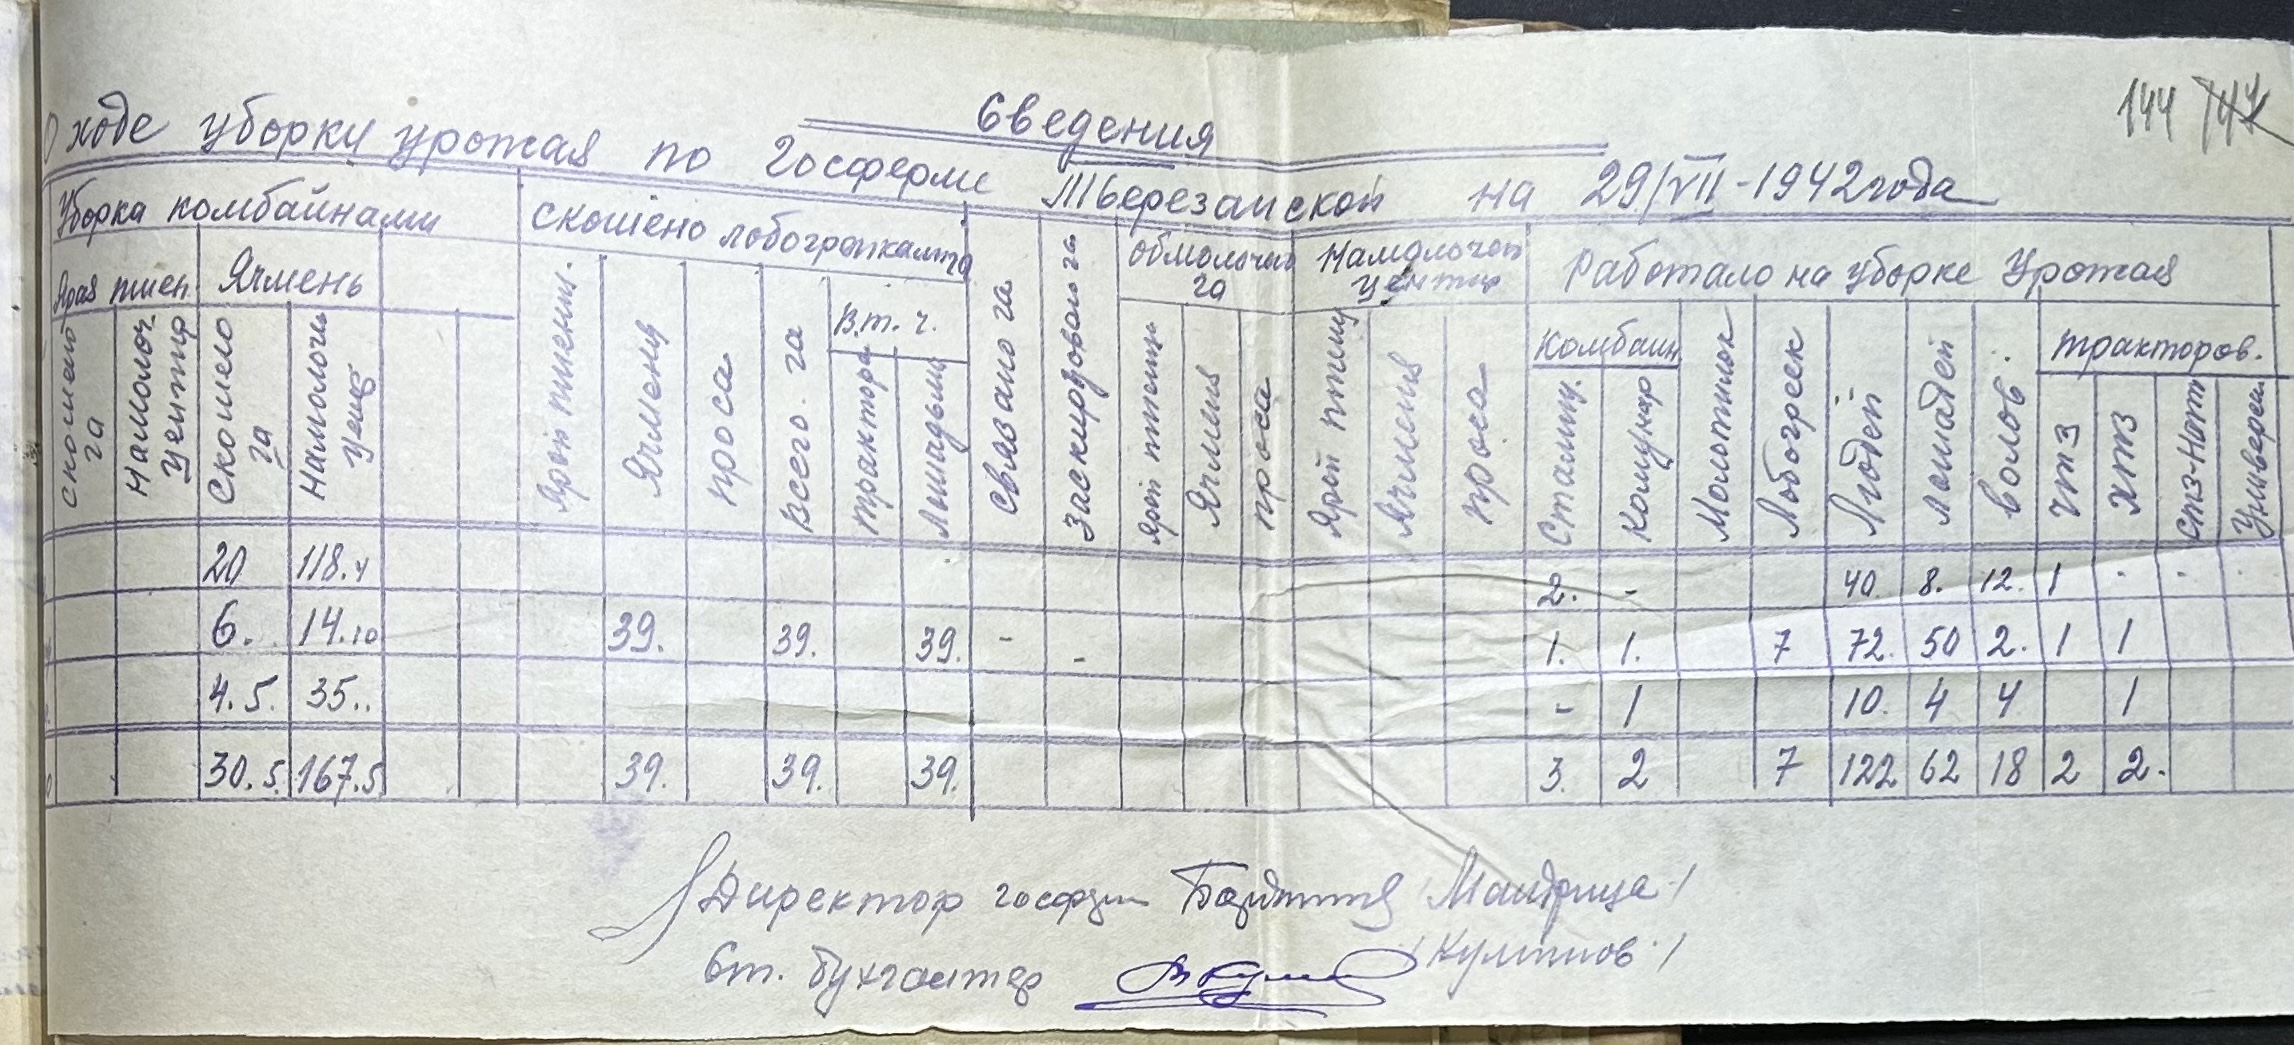 144 147
Сведения
О ходе уборки урожая по Госферме Тверезанской на 29/VII-1942 года
Уборка комбайнами
скошено лобогрейками га
связано га
заскирдовано га
обмолочен га
намолочен центнр
Работало на уборке Урожая
Ярая пшен.
Ячмень
скошено га
Намолоч. центнр
Скошено га
Намолочен цент
Ярой пшениц.
Ячменя
проса
всего га
В.т.ч.
трактора
Лошадьми
Ярой пшениц
Ячменя
проса
Ярой пшениц
Ячменя
проса
Комбайн.
Сталинц.
Комунар
Молотилок
Лобогреек
Людей
лошадей
волов
тракторов.
ЧТЗ
ХТЗ
СТЗ-Нати
Универсал
20 118.4 2. - 40. 8. 12. 1 - - -
6. 14.10 39. 39. 39. - - 1. 1. 7 72. 50 2. 1 1
4.5. 35.. - 1 10. 4 4 1
30.5. 167.5 39. 39. 39. 3. 2 7 122 62 18 2 2.
Директор госферм /Мандрица/
Ст. бухгалтер /Куликов/